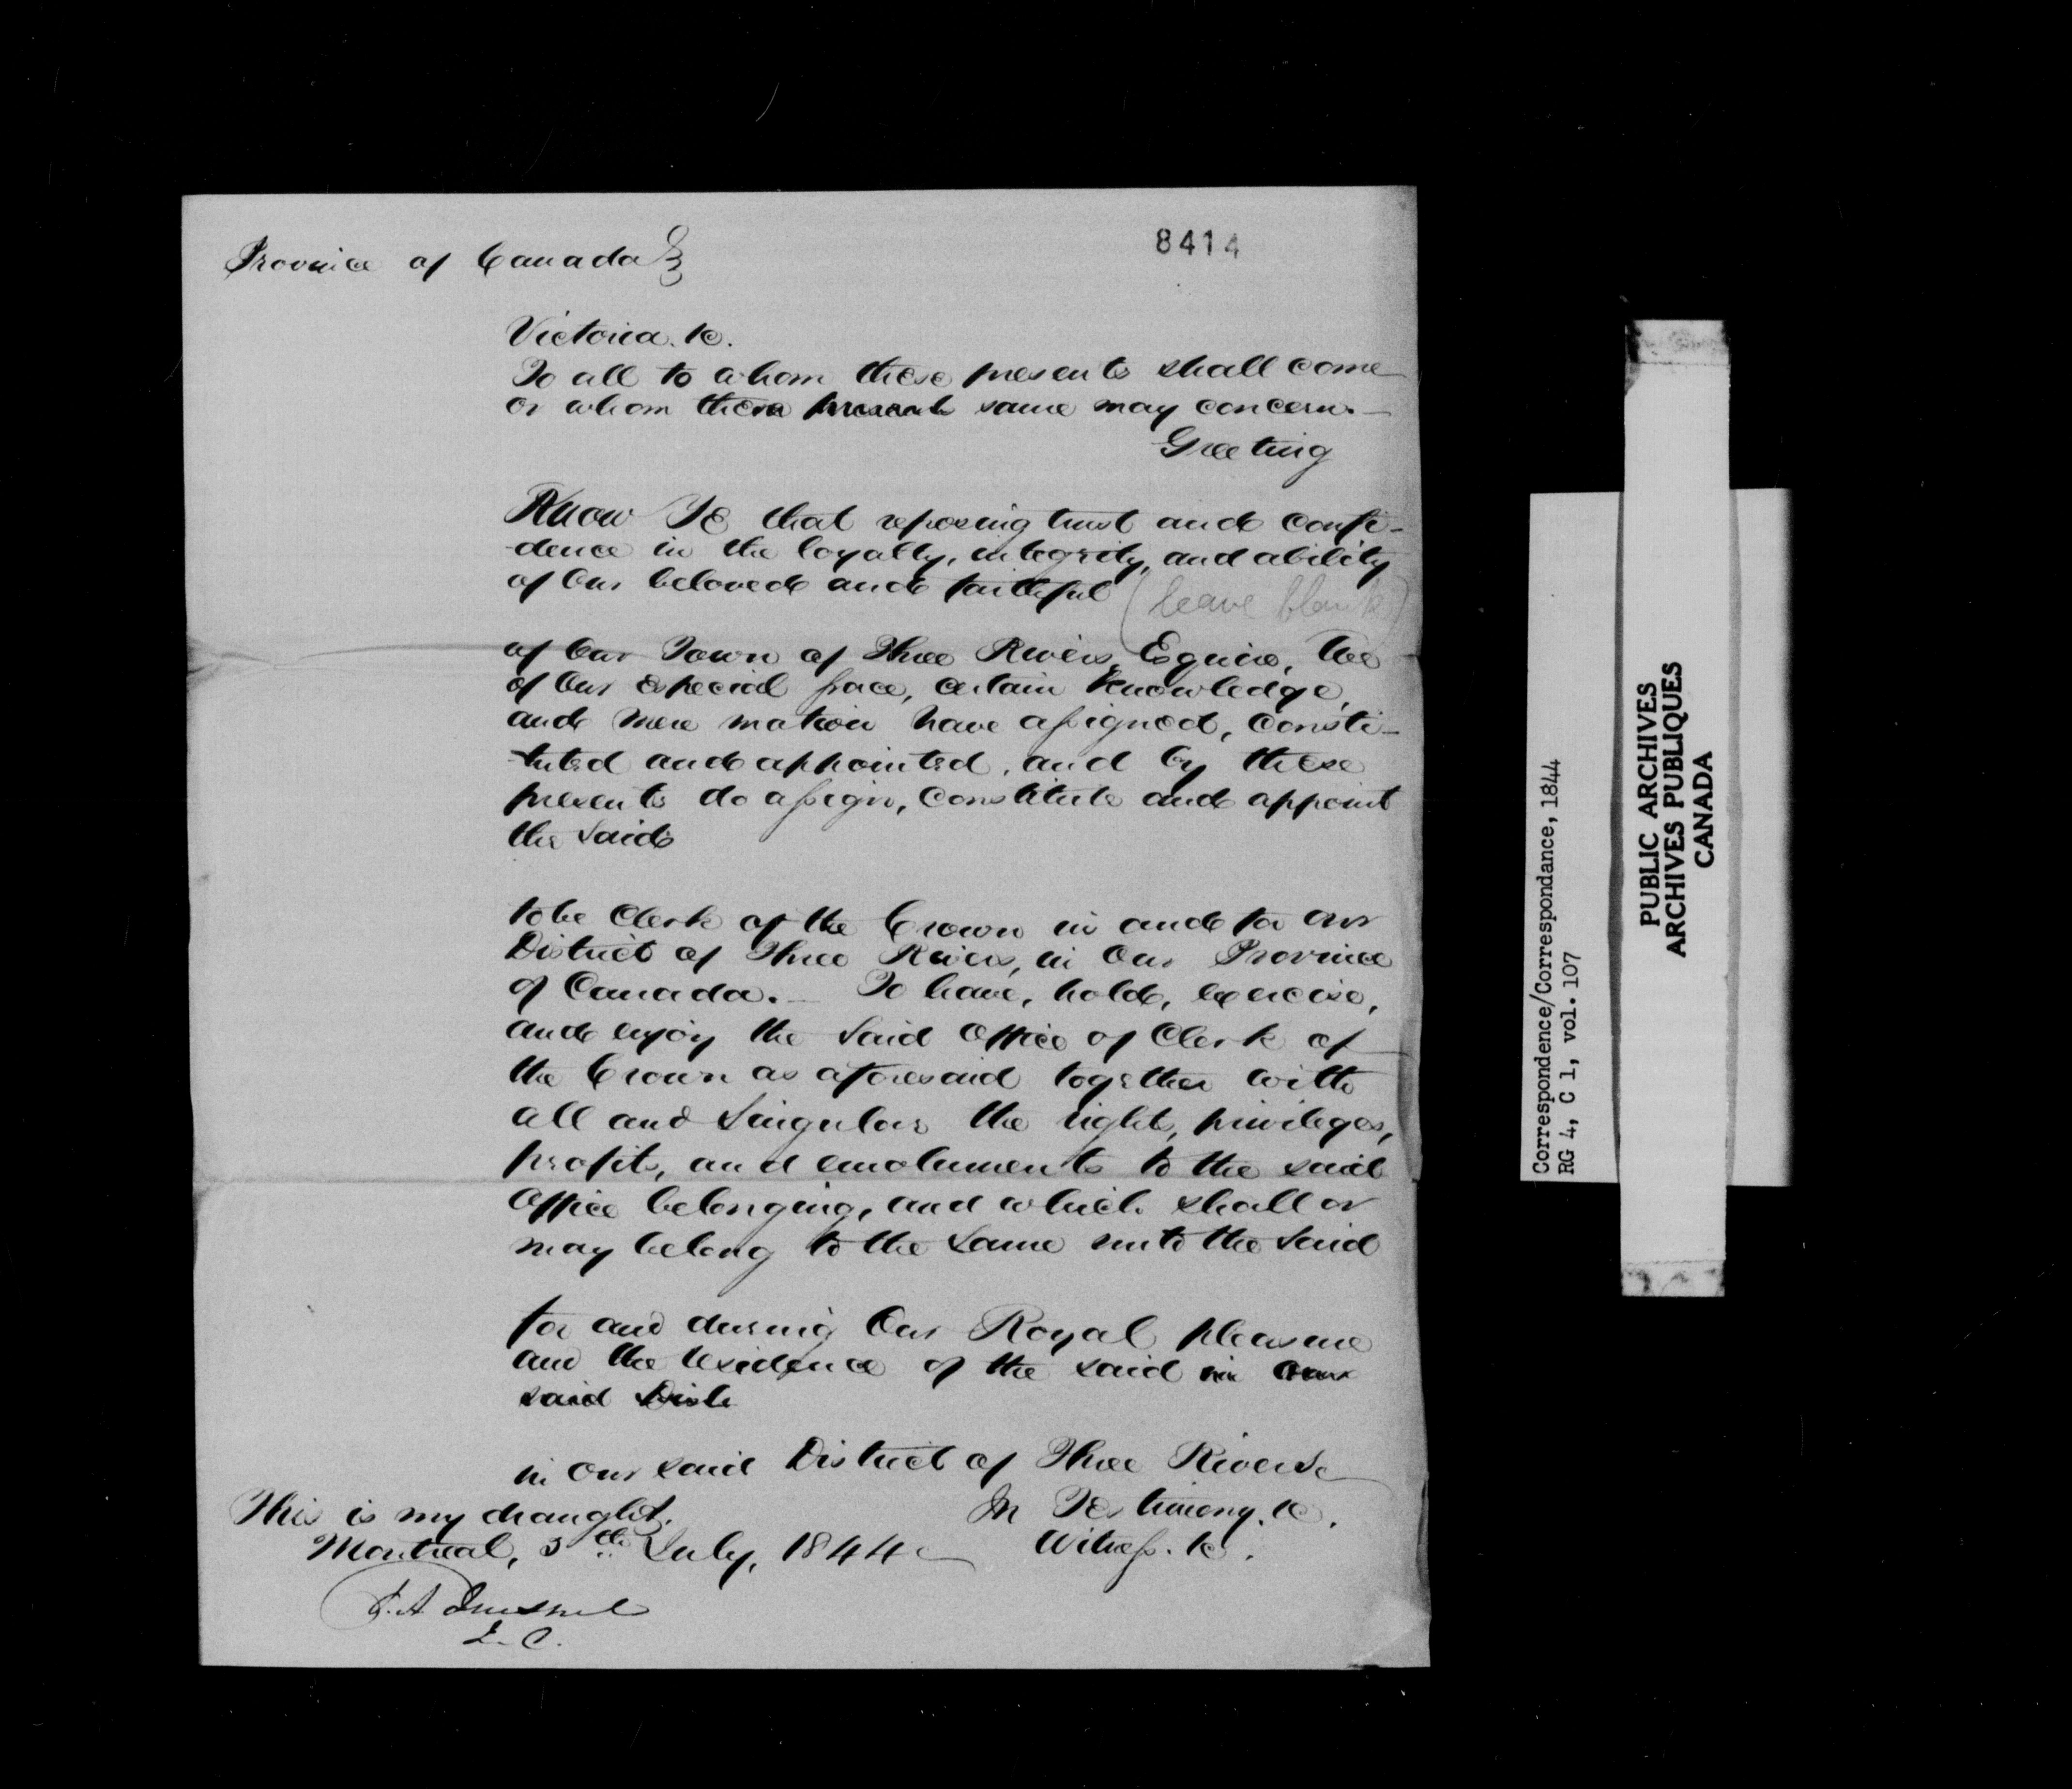 8414
Province of Canada
Victoria. &c.
To all to whom these presents shall come
or whom these presents same may concern.—
Greeting
Know Ye that reposing trust and confi-
dence in the loyalty, integrity, and ability
of Our beloved and faithful (leave blank)
of Our Town of Three Rivers, Esquire, We
of Our especial grace, certain knowledge,
and mere motion have assigned, consti-
-tuted and appointed, and by these
presents do assign, constitute and appoint
the said
to be Clerk of the Crown in and for our
District of Three Rivers, in Our Province
of Canada.— To have, hold, exercise,
and enjoy the said Office of Clerk of
the Crown as aforesaid together with
all and singular the rights, privileges,
profits, and emoluments to the said
Office belonging, and which shall or
may belong to the same unto the said
for and during Our Royal pleasure
and the residence of the said in our
said Dist
in our said District of Three Rivers
This is my draught. In Testimony. &c.
Montreal, 5th July, 1844 Witness. &c.
Correspondence/Correspondance, 1844
RG 4, C 1, vol. 107
PUBLIC ARCHIVES
ARCHIVES PUBLIQUES
CANADA